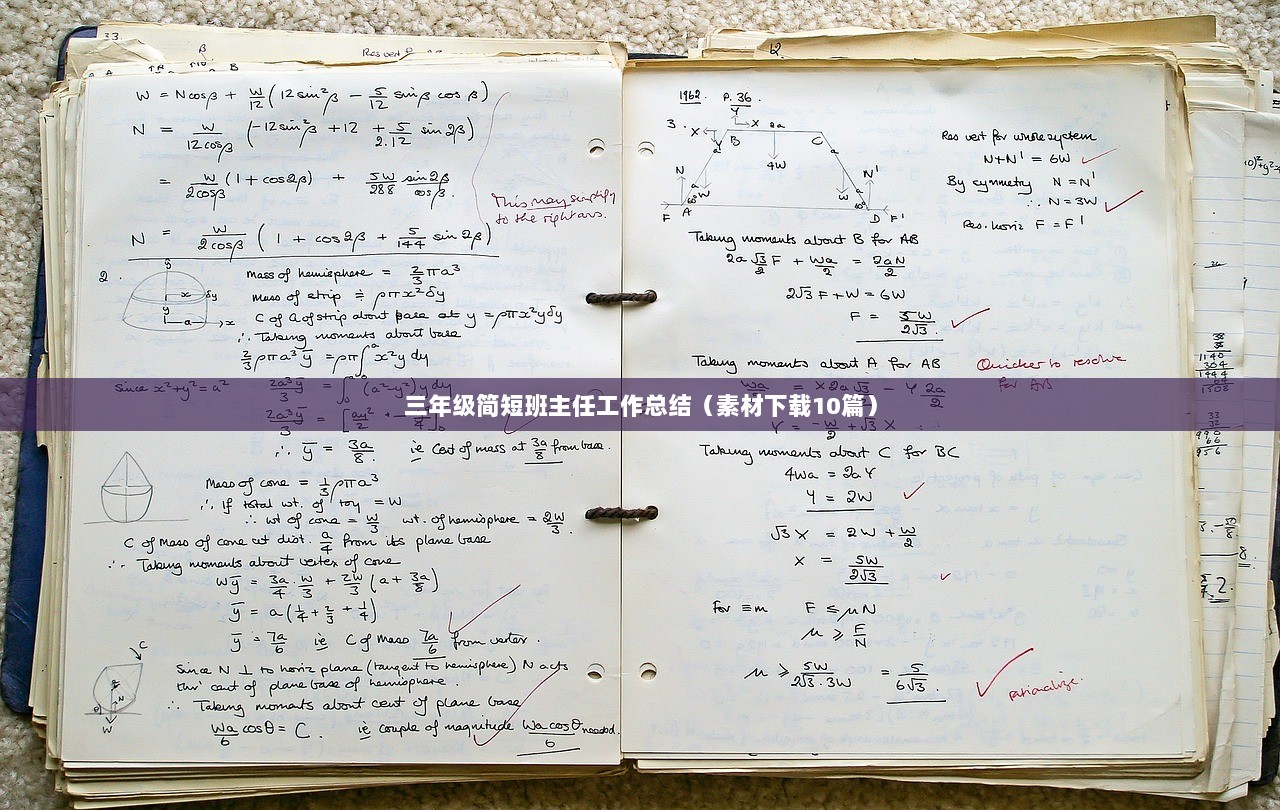 33.
Res vert
β
A B
W = Ncosβ + W/12 (12 sin²β − 5/12 sinβ cosβ)
N = W/12cosβ (−12sin²β + 12 + 5/2.12 sin 2β)
= W/2cosβ (1 + cos2β) + 5W/288 sin2β/cosβ.
This may simplify
to the right ans.
N = W/2cosβ (1 + cos2β + 5/144 sin 2β)
2.
y
x δy
y
a x
Mass of hemisphere = 2/3 πa³
Mass of strip ≑ ρπx²δy
C of G of strip about base at y = ρπx²yδy
∴ Taking moments about base
2/3 ρπa³ȳ = ρπ∫₀ᵃ x²y dy
Since x²+y² = a² 2a³ȳ/3 = ∫₀ (a²−y²)y dy
三年级简短班主任工作总结（素材下载10篇）
∴ ȳ = 3a/8. ie Cent of mass at 3a/8 from base.
Mass of cone = 1/3 ρπa³
∴ If total wt. of toy = W
∴ wt of cone = W/3 wt. of hemisphere = 2W/3.
C of Mass of cone at dist. a/4 from its plane base
∴ Taking moments about vertex of cone
Wȳ = 3a/4 · W/3 + 2W/3 (a + 3a/8)
ȳ = a(1/4 + 2/3 + 1/4)
ȳ = 7a/6 ie C of Mass 7a/6 from vertex.
C
θ N
W
Since N ⊥ to horiz plane (tangent to hemisphere) N acts
thro' cent of plane base of hemisphere.
∴ Taking moments about cent of plane base
Wa/6 cosθ = C. ie couple of magnitude Wa cosθ/6 needed.
12.
1962. P. 36.
3. X Y X 2a
B C
a 4W
N N'
a W W a
60° 60°
F A D F'
Res vert for whole system
N+N' = 6W
By symmetry N = N'
∴ N = 3W
Res. horiz F = F'
Taking moments about B for AB
2a √3/2 F + Wa/2 = 2aN/2
2√3 F + W = 6W
F = 5W/2√3.
Taking moments about A for AB
Quicker to resolve
for AB
Wa/2 = X2a√3/2 − Y 2a/2
Y = −W/2 + √3 X
Taking moments about C for BC
4Wa = 2aY
Y = 2W
√3 X = 2W + W/2
X = 5W/2√3
For ≡m F ≤ μN
μ ≥ F/N
μ ≥ 5W/2√3.3W = 5/6√3.
rationalize.
38
38
1140
304
1444
64
1508
33
33
990
66
956